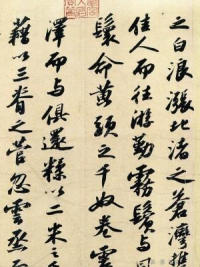 之白浪漲北渚之蒼灣携
佳人而往遊勤霧鬢与風
鬟命黄頭之千奴卷震
澤而与俱還糅以二米之
藉以三脊之菅忽雲烝而